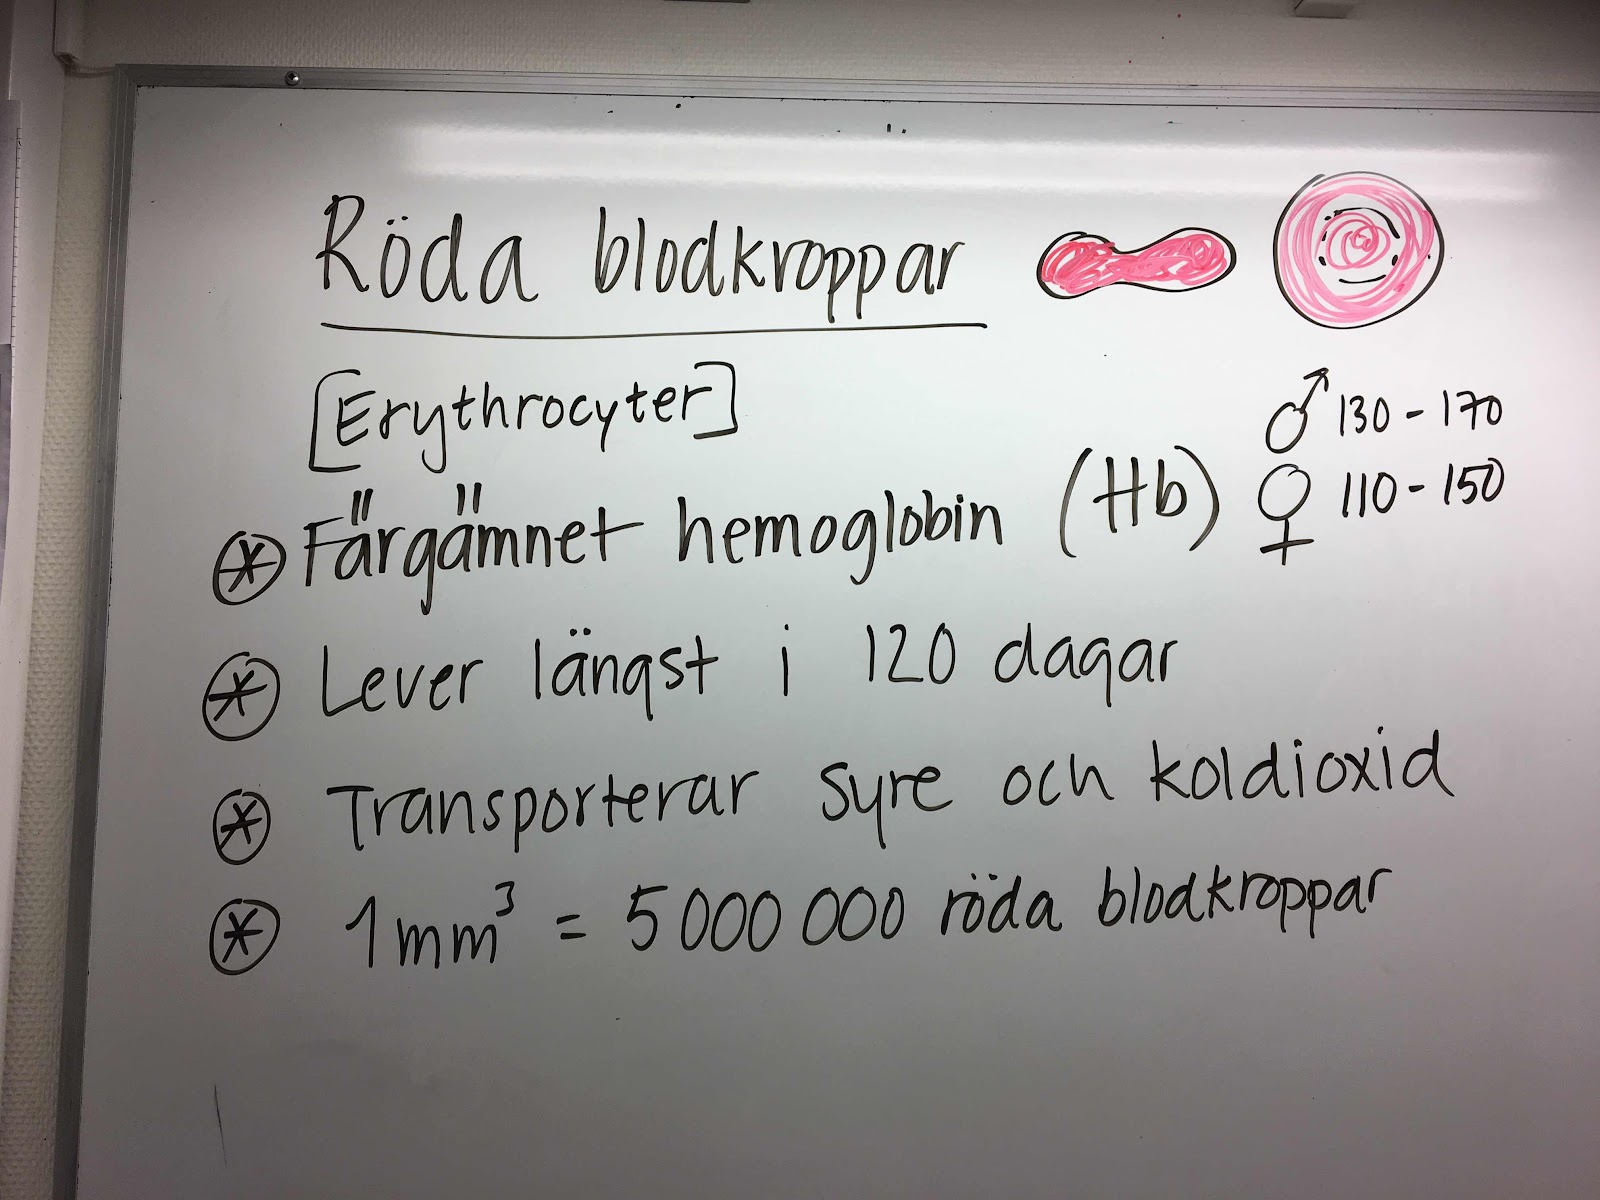 Röda blodkroppar
[Erythrocyter]
♂ 130 - 170
♀ 110 - 150
⊛ Färgämnet hemoglobin (Hb)
⊛ Lever längst i 120 dagar
⊛ Transporterar syre och koldioxid
⊛ 1 mm³ = 5 000 000 röda blodkroppar